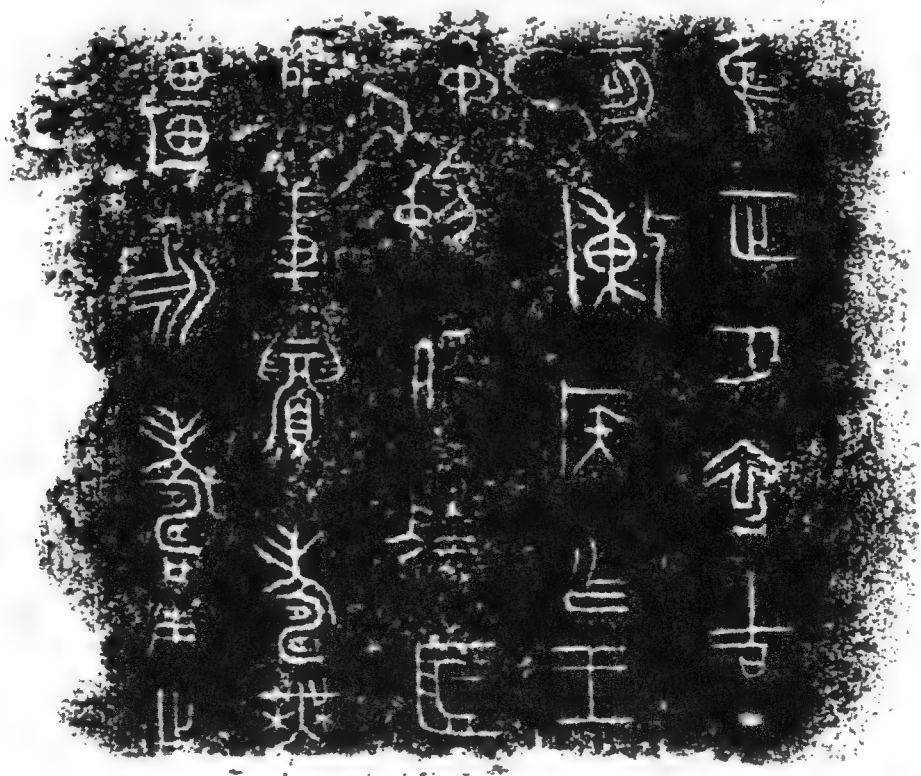 隹正月初吉丁
亥陳侯乍王
中媯媵
用眉壽無
疆永壽用之